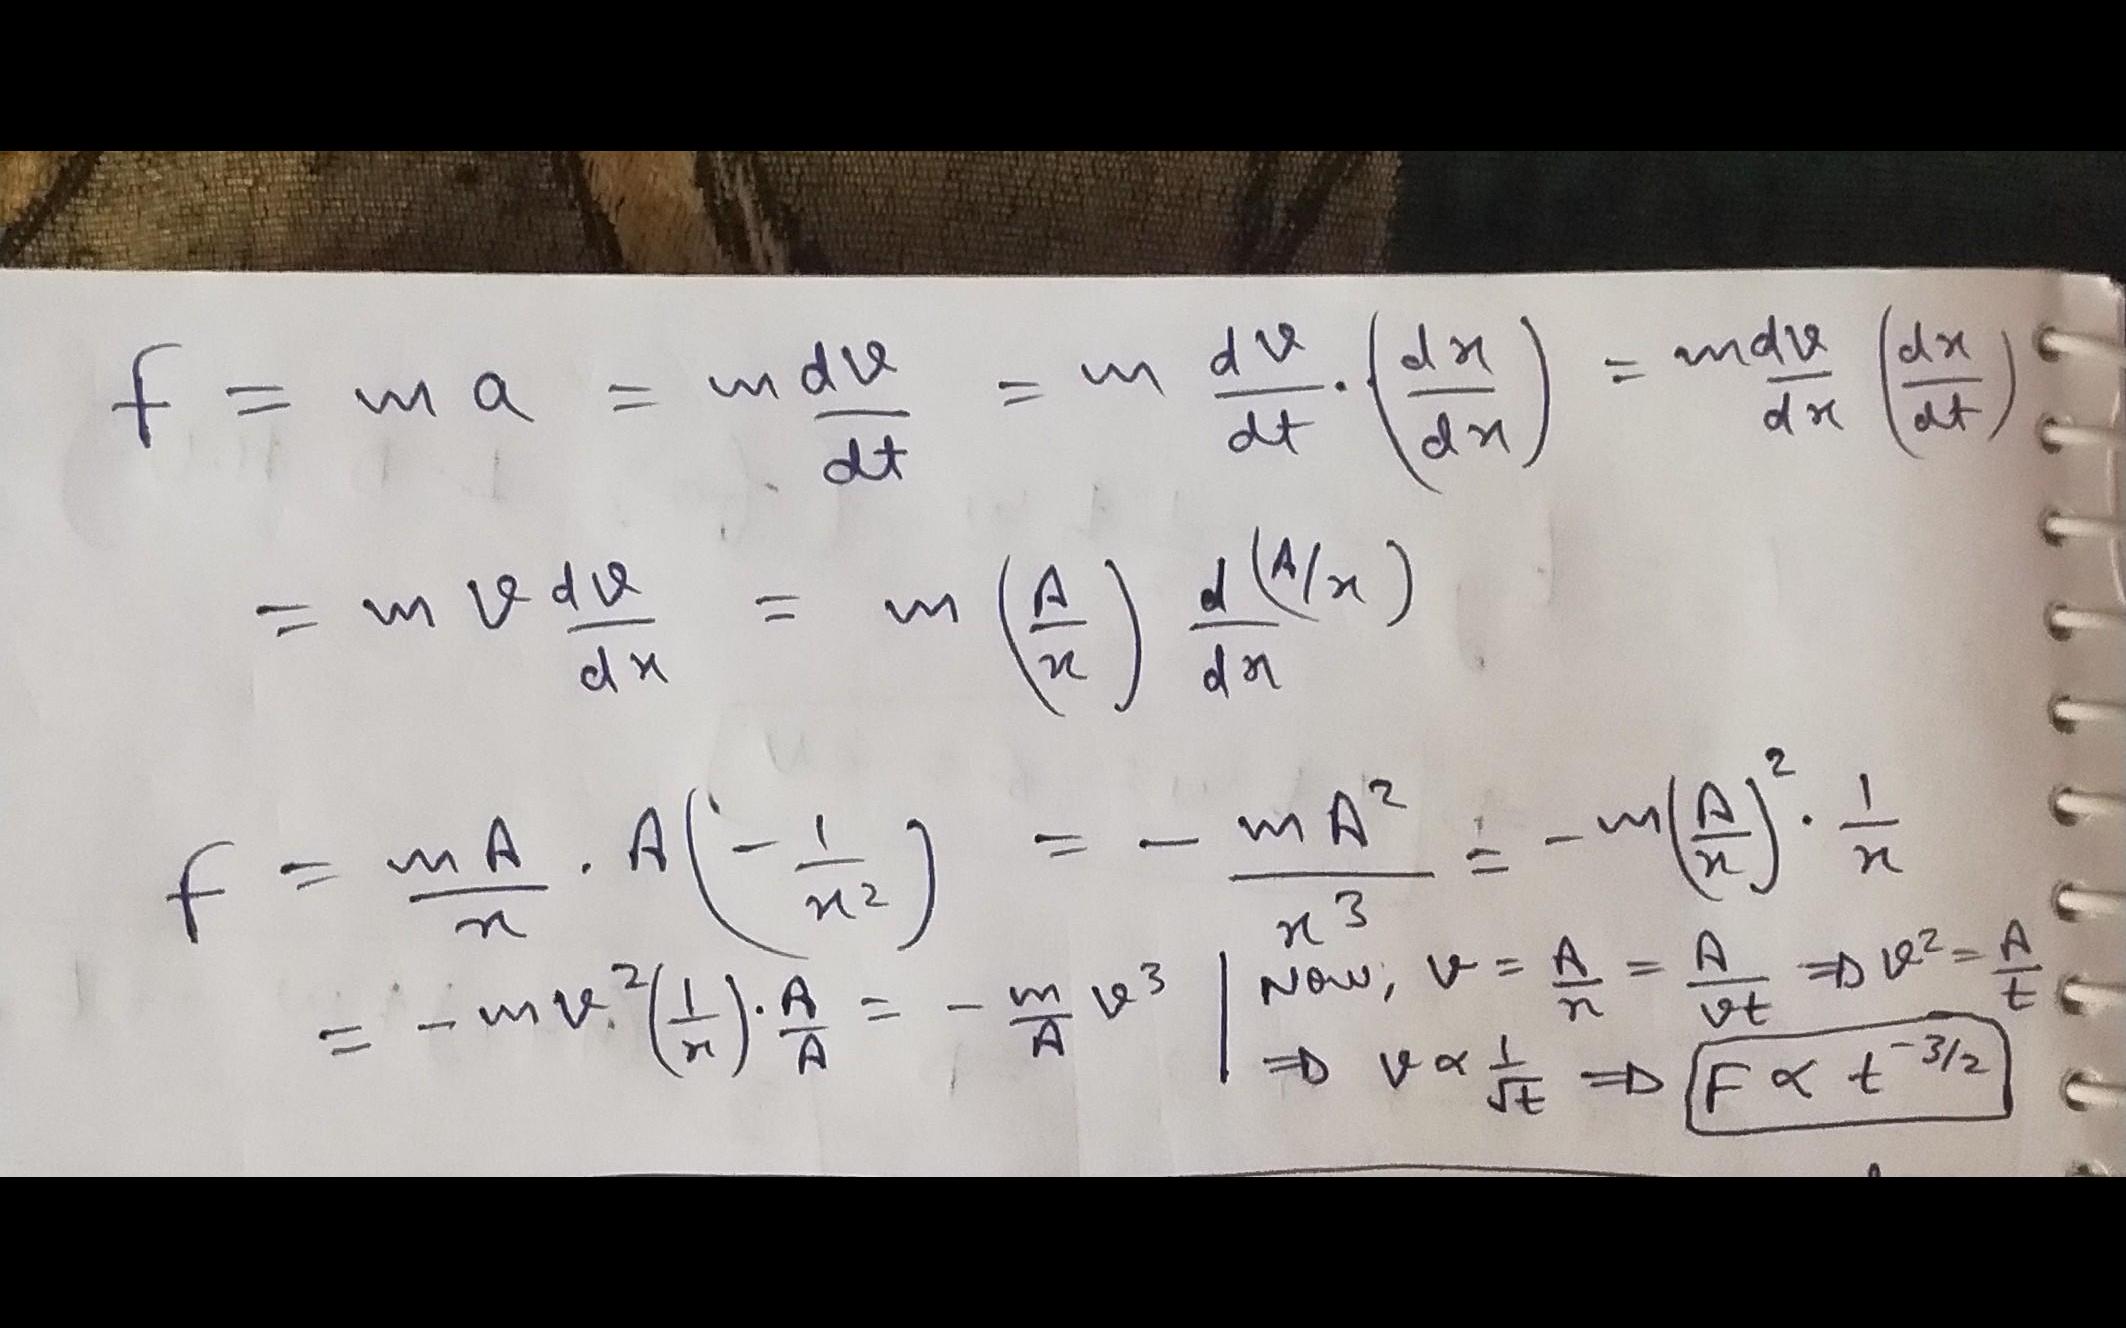 f = m a = m dv/dt = m dv/dt · (dx/dx) = m dv/dx (dx/dt)
= m v dv/dx = m (A/x) d(A/x)/dx
f = mA/x · A(-1/x²) = - mA²/x³ = -m(A/x)² · 1/x
= -mv²(1/x)·A/A = - m/A v³ | Now, v = A/x = A/vt ⇒ v² = A/t
⇒ v ∝ 1/√t ⇒ F ∝ t^(-3/2)